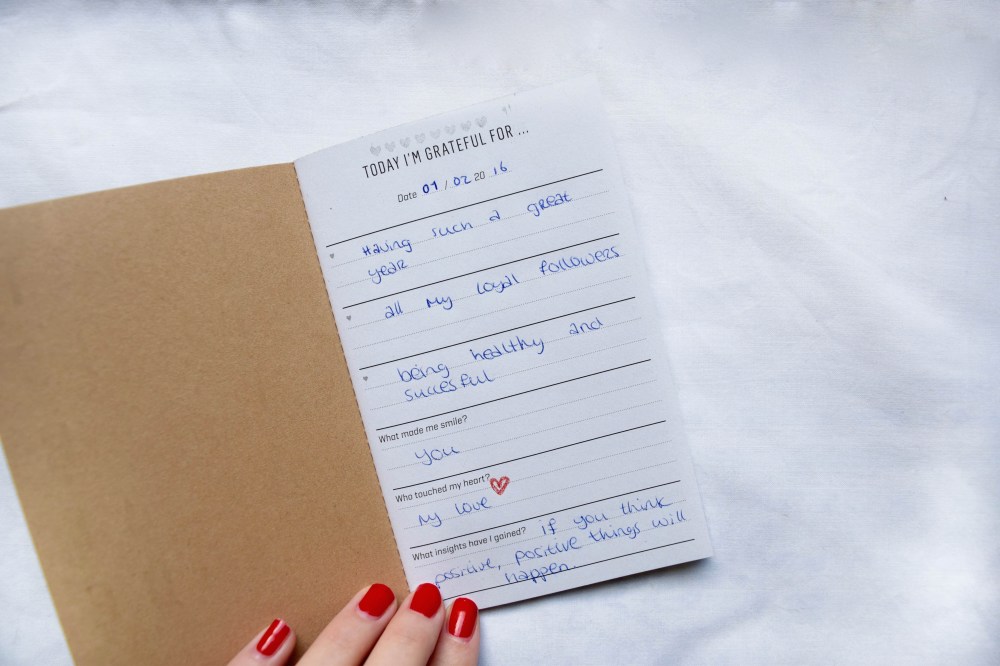 TODAY I'M GRATEFUL FOR ...
Date 01 / 02 20 16
Having such a great
year
all my loyal followers
being healthy and
succesful
What made me smile?
you
Who touched my heart?
my love
What insights have I gained? if you think
positive, positive things will
happen.